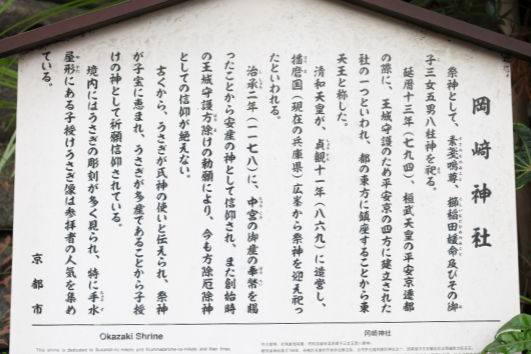 岡﨑神社
祭神として、素盞嗚尊、櫛稲田媛命及びその御
子三女五男八柱神を祀る。
延暦十三年(七九四)、桓武天皇の平安京遷都
の際に、王城守護のため平安京の四方に建立された
社の一つといわれ、都の東方に鎮座することから東
天王と称した。
清和天皇が、貞観十一年(八六九)に造営し、
播磨国(現在の兵庫県)広峯から祭神を迎え祀っ
たといわれる。
治承二年(一一七八)に、中宮の御産の奉幣を賜
ったことから安産の神として信仰され、また創始時
の王城守護方除けの勅願により、今も方除厄除神
としての信仰が絶えない。
古くから、うさぎが氏神の使いと伝えられ、祭神
が子宝に恵まれ、うさぎが多産であることから子授
けの神として祈願信仰されている。
境内にはうさぎの彫刻が多く見られ、特に手水
屋形にある子授けうさぎ像は参拝者の人気を集め
ている。
京都市
Okazaki Shrine
岡崎神社